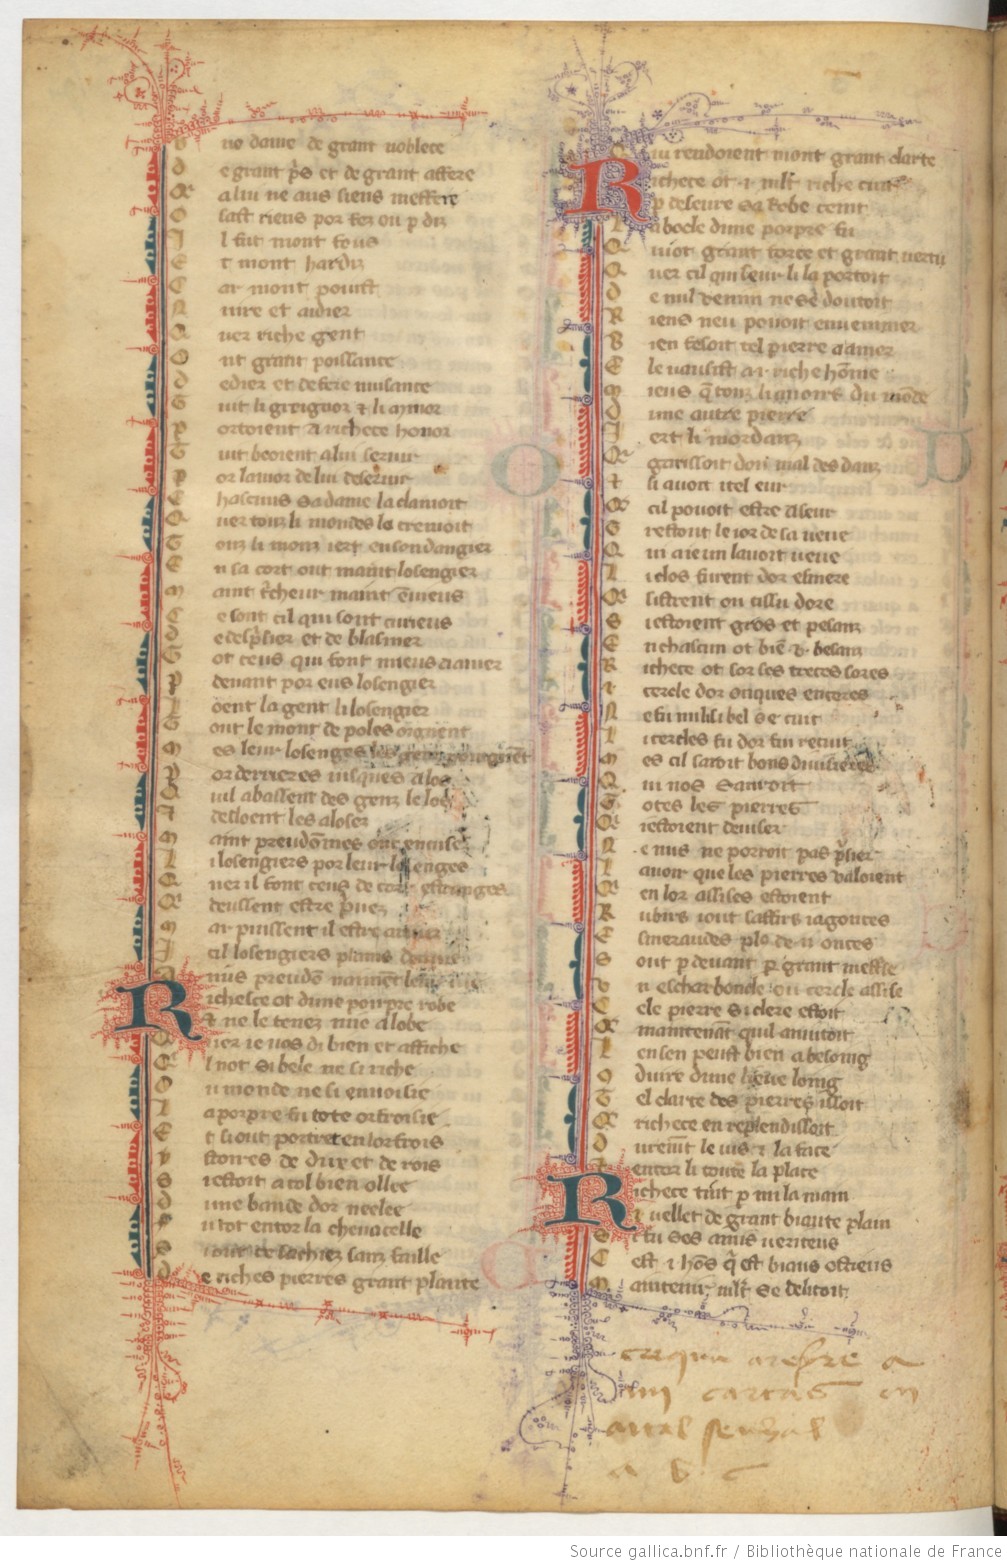 U no dame de grant noblece
D e grant p̄s et de grant affere
Q a lui ne aus siens meffere
O sast riens por fez ou p diz
I l fut mont fous
E t mont hardiz
C ar mont pouist
N uire et aidier
Q uer riche gent
O nt grant poissance
D edier et defere nuisance
G uit li greignor & li mynor
P ortoient a richece honor
uit beoient a lui servir
P or lamor de lui deservir
C hascuns sa dame la clamoit
Q uer touz li mondes la cremoit
T ouz li monz iert en son dangier
E n sa cort out maint losengier
M aint t̄cheur maint ēvieus
C e sont cil qui sont curieus
D e desp̄sier et de blasmer
T ot ceus qui font mieus a amer
P devant por eus losengier
L oent la gent li losengier
T out le mont de poles oignent
M es leur losenges les genz poignent
P or derrieres iusques a los
Q uil abassent des genz le los
desloent les aloser
M aint preudōmes ont encuse
L i losengiers por leur losenges
Q uer il font ceus de cort estranges
Q deussent estre p̄vez
M ar puissent il estre arriver
I cil losengiers plains denvie
nus preudō naiment leur vie
R ichesce ot dune porpre robe
E t ne le tenez mie a lobe
Q uer ie vos di bien et affiche
E l not si bele ne si riche
O u monde ne si envoisie
L a porpre fu tote orfroisie
E t si out portret en lorfrois
Y stoires de dux et de rois
S iestoit a col bien ollee
D une bande dor neelee
M u tot entor la chevacelle
S i out ce sachiez sanz faille
D e riches pierres grant plante
Q iu rendoient mont grant clarte
R ichece ot ı mlt riche ceint
p deseure sa robe ceint
L a bocle dune porpre fu
Q uiot grant force et grant vertu
Q uer cil qui seur li la portoit
D e nul venin ne se doutoit
R iens neu pouoit envenimer
B ien fesoit tel pierre a amer
E le vausist a ı riche hōme
M ieus q̄ touz li anoirs du mōde
D une autre pierre
I ert li mordanz
Q garissoit dou mal des danz
T si avoit itel eur
Q cil pouoit estre aseur
G restout le ior de sa veue
Q ui a ieun lavoit veue
L i clos furent dor esmere
Q sistrent ou tissu dore
S iestoient gros et pesanz
E n chascun ot biē ıı besanz
R ichece ot sor ses treces sores
I cercle dor onques encores
N e fu nul si bel se cuit
L i cercles fu dor fin recuit
M es cil saroit bons divisierres
Q ui nos savroit
T otes les pierres
Q iestoient deviser
N e nus ne porroit pas p̄sier
L avoir que les pierres valoient
Q en lor assises estoient
R ubirs iout saffirs iagonces
E smeraudes pl' de ıı onces
S out p devant p grant mestse
V n escharboncle ou cercle assise
E cle pierre si clere estoit
Q maintenant quil anuitoit
L en sen peust bien a besoing
C duire dune lieue loing
T el clarte des pierres issoit
Q richece en resplendissoit
D uremt le vis & la face
E entor li toute la place
R ichece tint p mi la main
I vellet de grant biaute plain
E t fu ses amis veriteus
C est ı hōs q̄ est biaus osteus
M aintenir mlt se delitoit
a b c
Source gallica.bnf.fr / Bibliothèque nationale de France